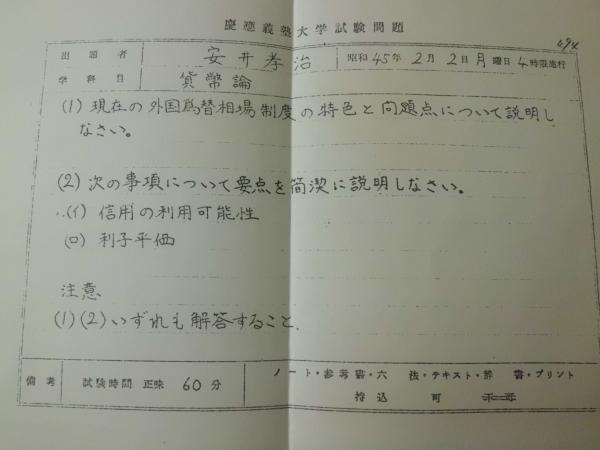 慶應義塾大学試験問題
694
出題者 安井孝治 昭和45年2月2日月曜日4時限施行
学科目 貨幣論
(1) 現在の外国為替相場制度の特色と問題点について説明し
なさい。
(2) 次の事項について要点を簡潔に説明しなさい。
(イ) 信用の利用可能性
(ロ) 利子平価
注意
(1)(2)いずれも解答すること.
備考 試験時間 正味 60分
ノート・参考書・六法・テキスト・辞書・プリント
持込 可 不可